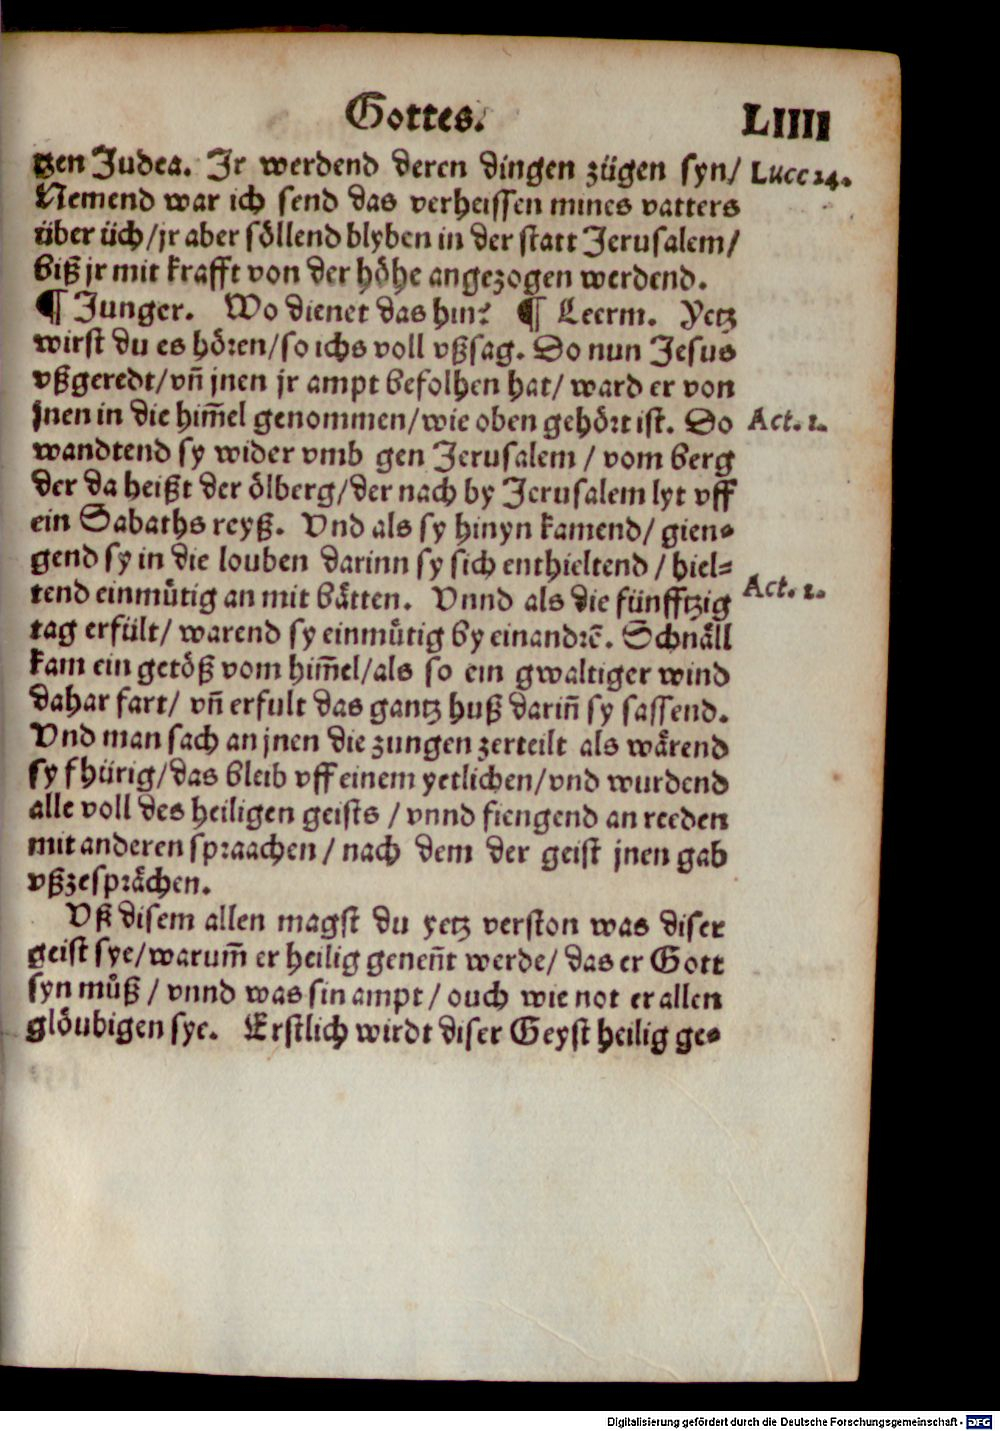 Gottes. LIIII
tzen Judea. Jr werdend deren dingen zügen syn/ Lucc 24.
Nemend war ich send das verheissen mines vatters
über üch/jr aber söllend blyben in der statt Jerusalem/
biß jr mit krafft von der höhe angezogen werdend.
¶ Junger. Wo dienet das hin? ¶ Leerm. Yetz
wirst du es hören/so ichs voll vßsag. Do nun Jesus
vßgeredt/vñ jnen jr ampt befolhen hat/ ward er von
jnen in die him̃el genommen/wie oben gehört ist. Do Act. 1.
wandtend sy wider vmb gen Jerusalem / vom berg
der da heißt der ölberg/der nach by Jerusalem lyt vff
ein Sabaths reyß. Vnd als sy hinyn kamend/ gien⸗
gend sy in die louben darinn sy sich enthieltend / hiel⸗
tend einmuͤtig an mit bätten. Vnnd als die fünfftzig Act. 2.
tag erfült/ warend sy einmuͤtig by einandrē. Schnäll
kam ein getöß vom him̃el/als so ein gwaltiger wind
dahar fart/ vñ erfult das gantz huß dariñ sy sassend.
Vnd man sach an jnen die zungen zerteilt als wärend
sy fhürig/das bleib vff einem yetlichen/vnd wurdend
alle voll des heiligen geists / vnnd fiengend an reeden
mit anderen spraachen / nach dem der geist jnen gab
vßzesprächen.
Vß disem allen magst du yetz verston was diser
geist sye/warum̃ er heilig geneñt werde/ das er Gott
syn muͦß / vnnd was sin ampt / ouch wie not er allen
glöubigen sye. Erstlich wirdt diser Geyst heilig ge⸗
Digitalisierung gefördert durch die Deutsche Forschungsgemeinschaft - DFG